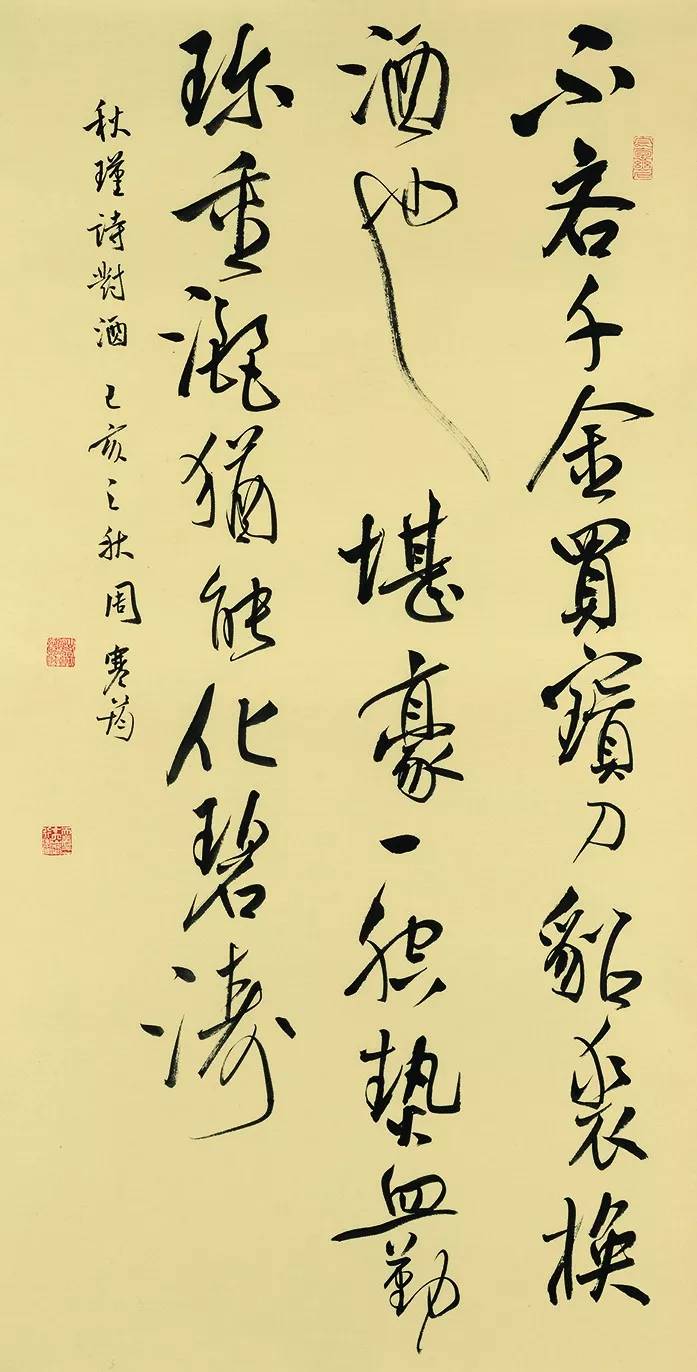 不吝千金買寶刀貂裘換
酒也堪豪一腔熱血勤
珍重灑猶能化碧濤
秋瑾詩對酒 己亥之秋周寒筠